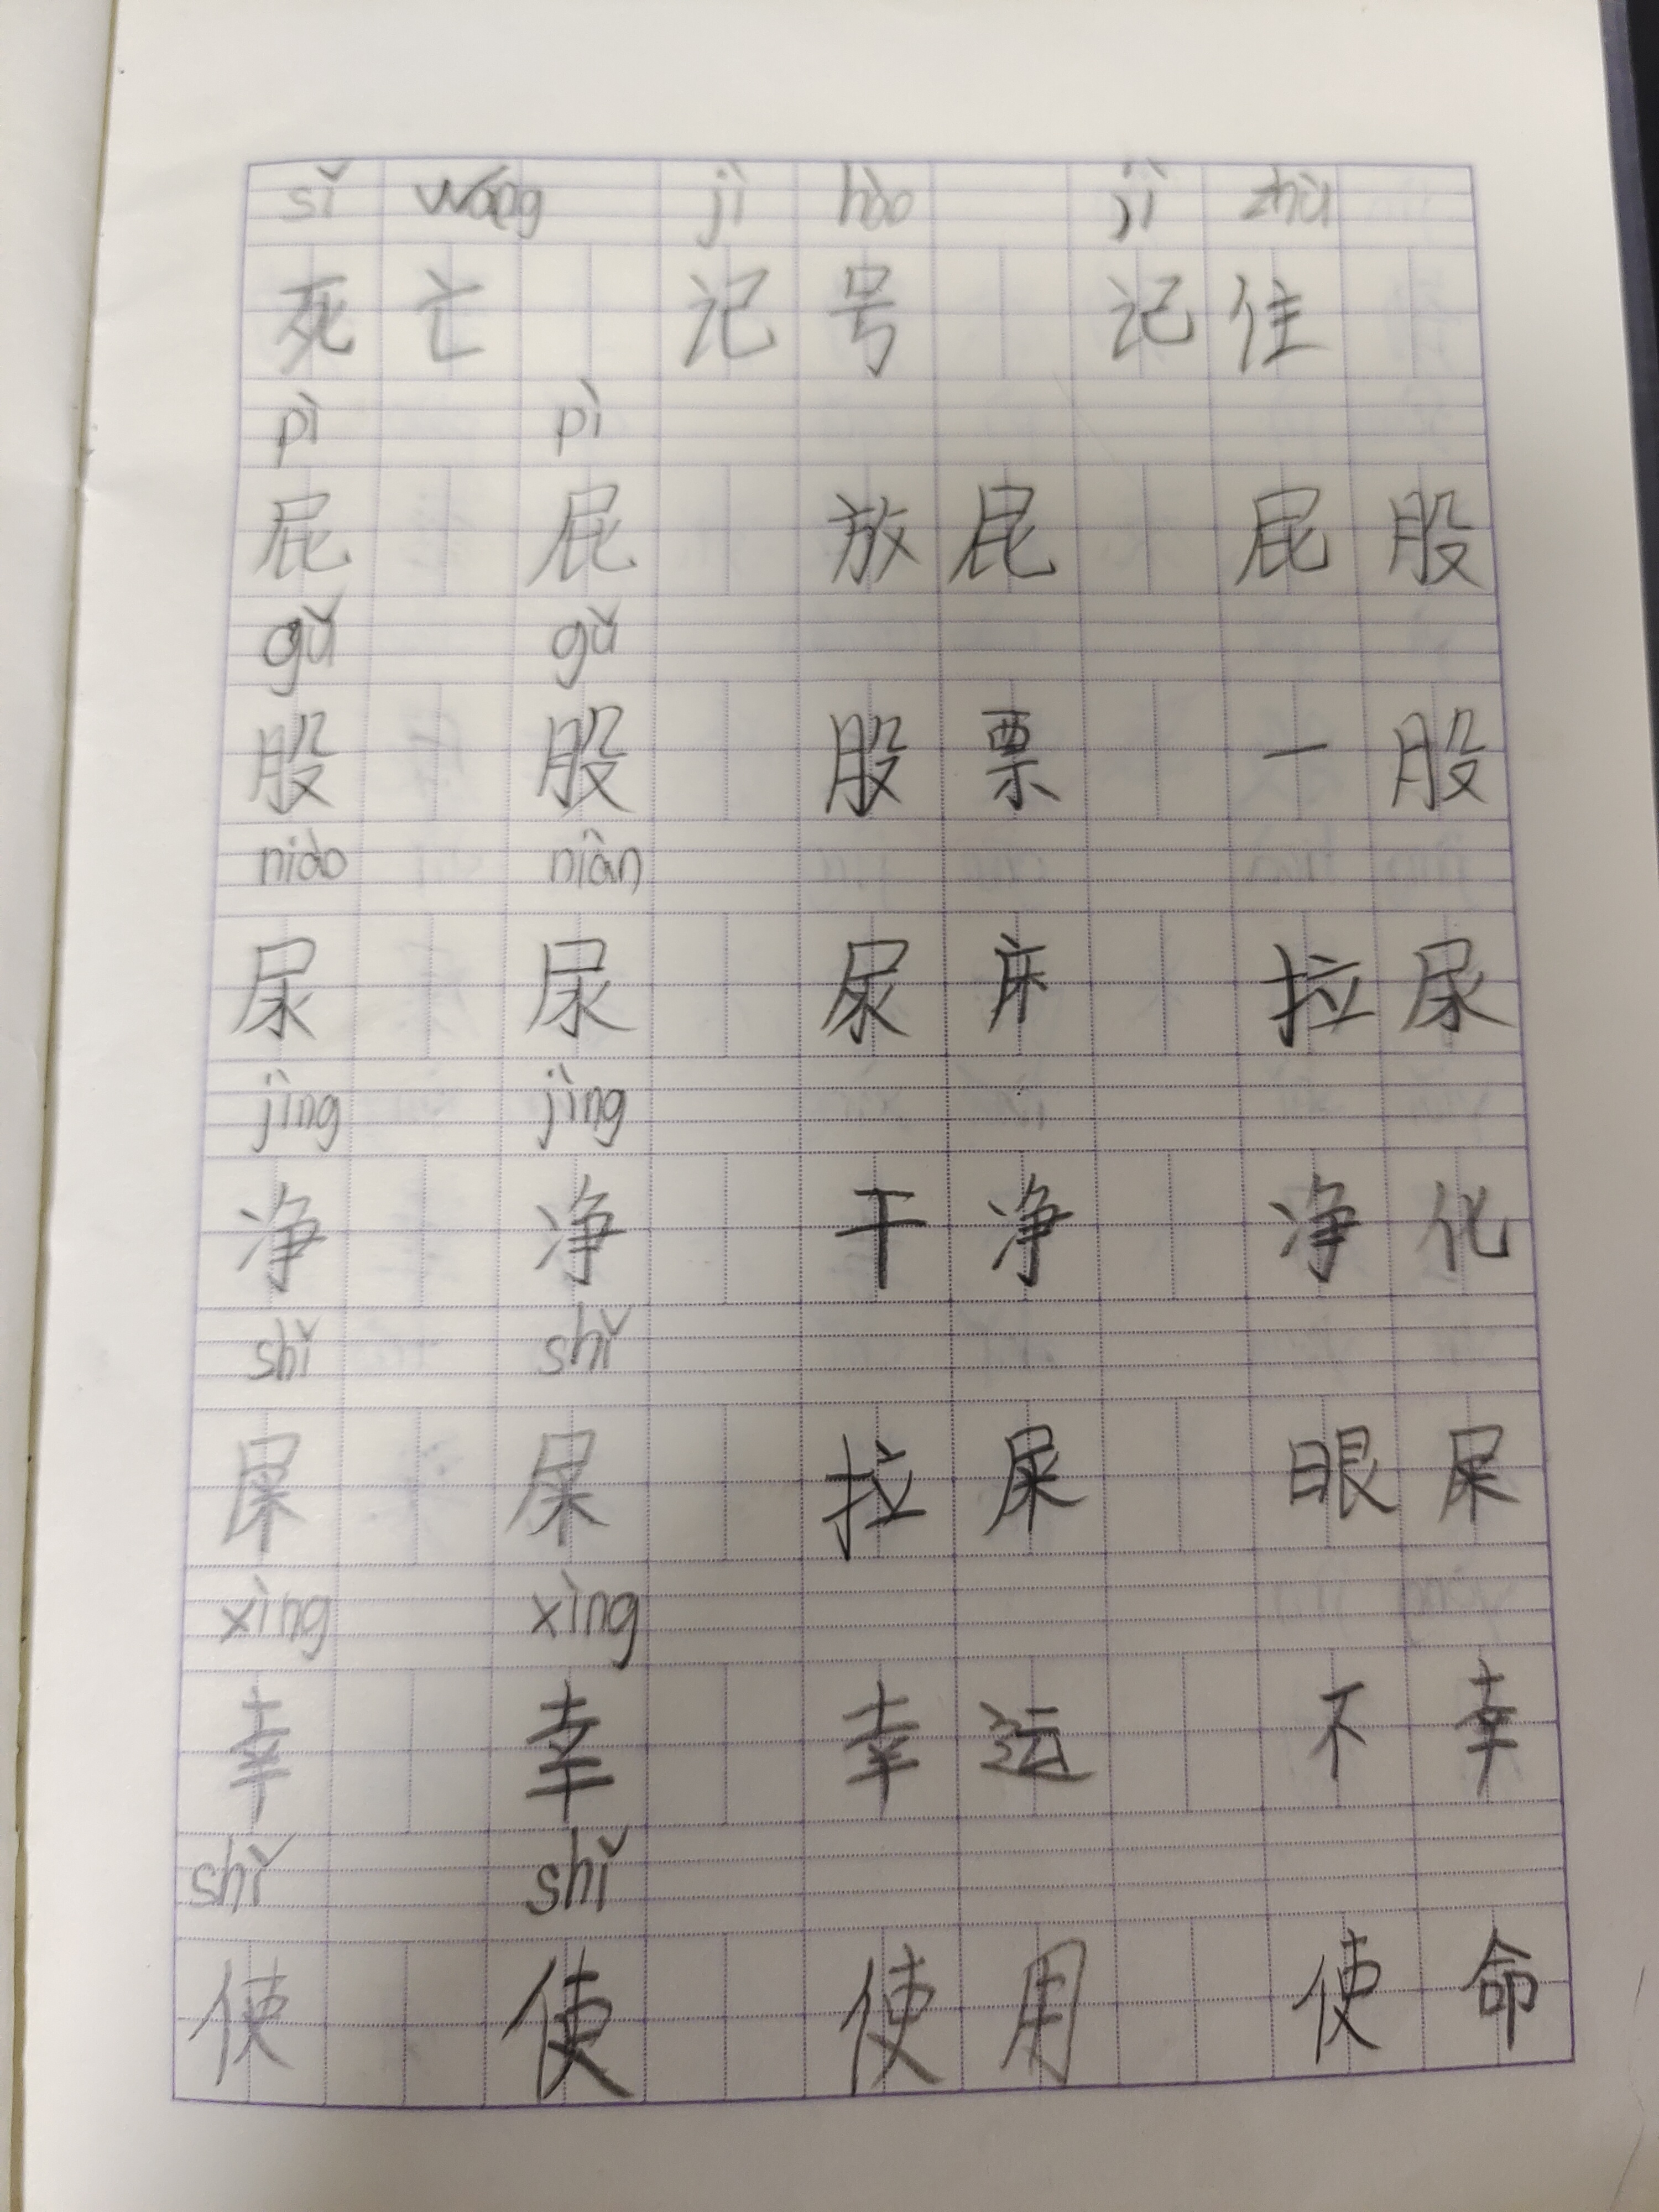 sǐ wáng jì hào jì zhù
死亡 记号 记住
pì pì
屁 屁 放屁 屁股
gǔ gǔ
股 股 股票 一股
niào niàn
尿 尿 尿床 拉尿
jìng jìng
净 净 干净 净化
shǐ shǐ
屎 屎 拉屎 眼屎
xìng xìng
幸 幸 幸运 不幸
shǐ shǐ
使 使 使用 使命